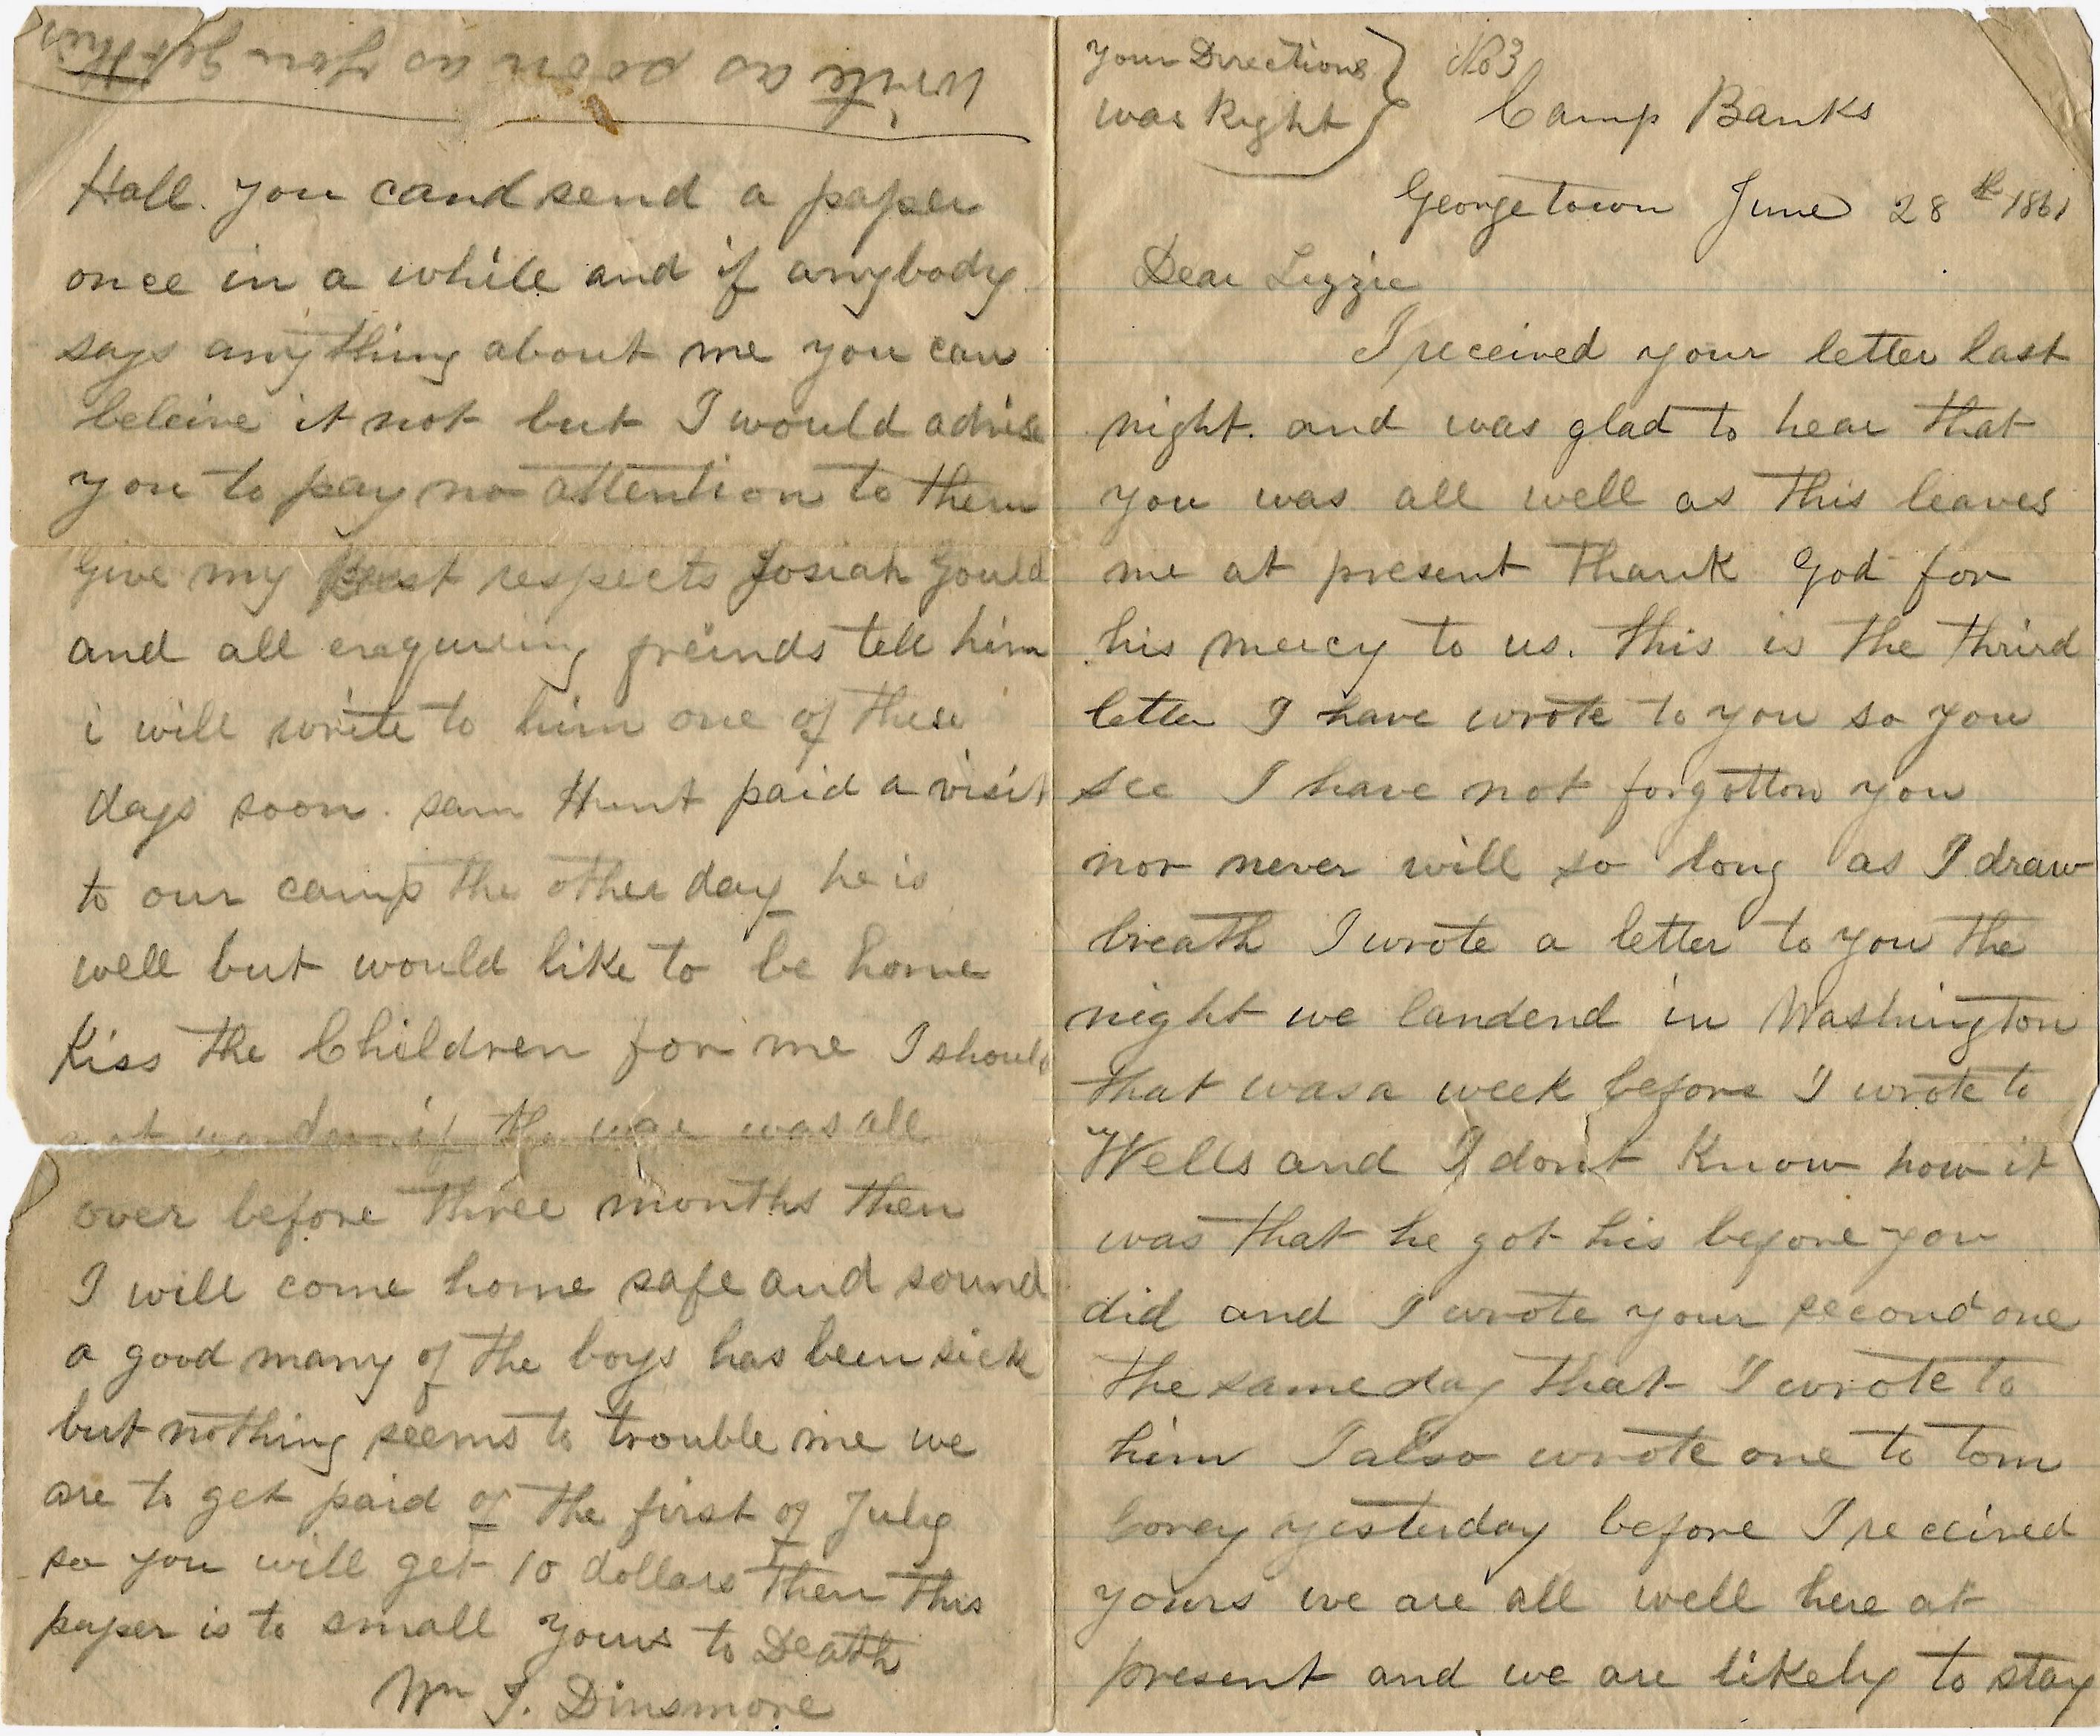 your Directions
was Right
No 3
Camp Banks
Georgetown June 28th 1861
Dear Lizzie
I received your letter last
night. and was glad to hear that
you was all well as this leaves
me at present thank God for
his mercy to us. this is the thrird
letter I have wrote to you so you
see I have not forgotton you
nor never will so long as I draw
breath I wrote a letter to you the
night we landend in Washington
that was a week before I wrote to
Wells and I dont know how it
was that he got his before you
did and I wrote your second one
the same day that I wrote to
him I also wrote one to tom
Corey yesterday before I received
yours we are all well here at
present and we are likely to stay
write as soon as you get this
Hall. you cand send a paper
once in a while and if anybody
says anything about me you can
beleive it not but I would advise
you to pay no attention to them
Give my Best respects Josiah Gould
and all enquiring freinds tell him
i will write to him one of these
days soon. sam Hunt paid a visit
to our camp the other day he is
well but would like to be home
Kiss the Children for me I should
not wonder if the war was all
over before three months then
I will come home safe and sound
a good many of the boys has been sick
but nothing seems to trouble me we
are to get paid of the first of July
so you will get 10 dollars then this
paper is to small yours to Death
Wm J. Dinsmore